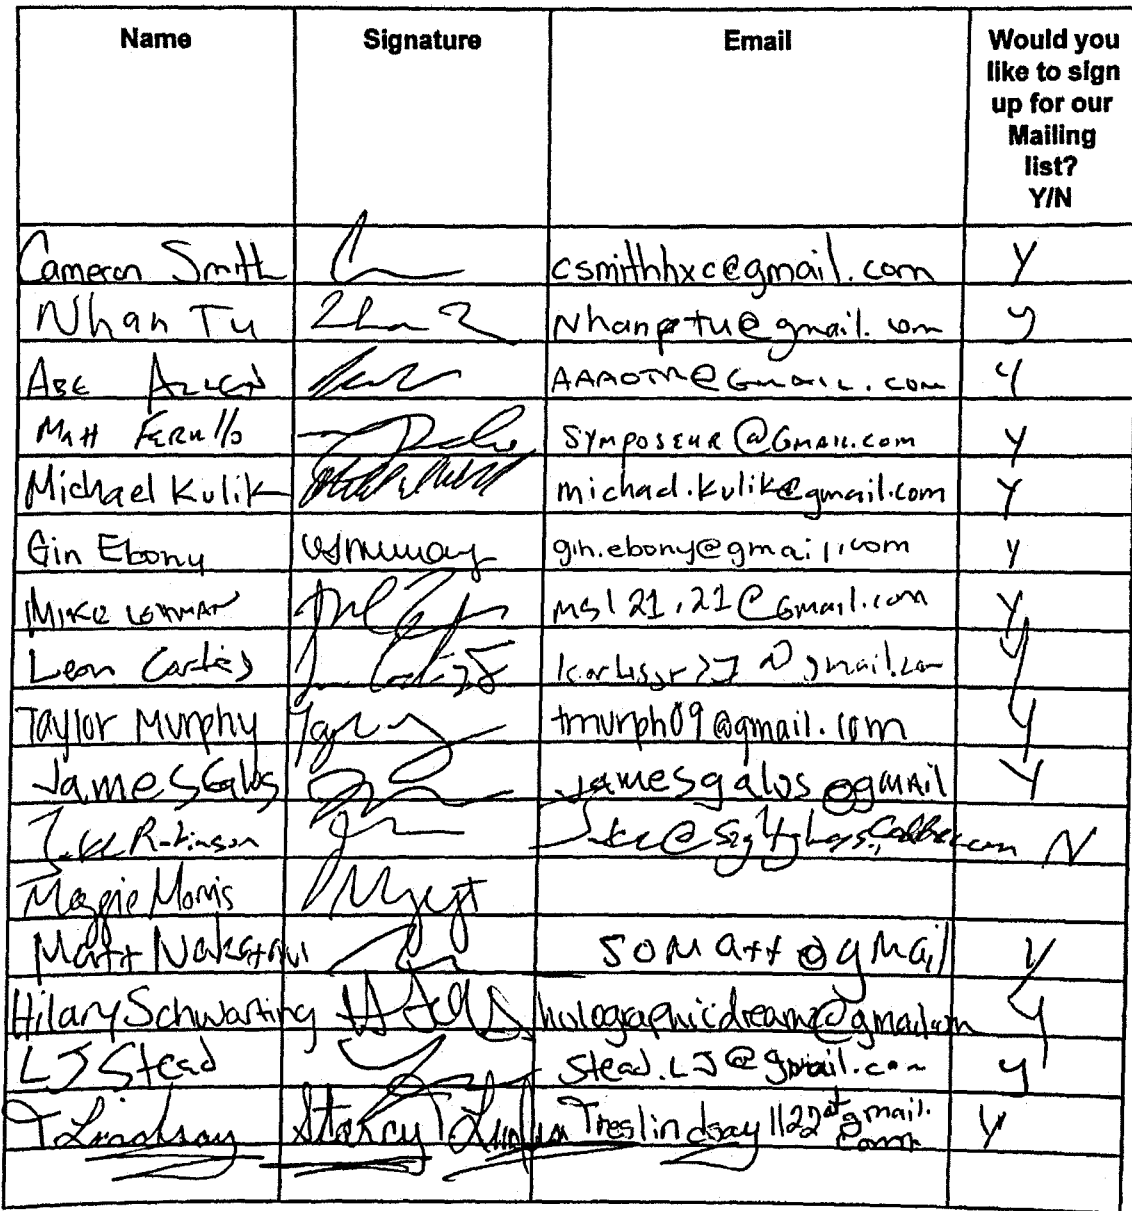 Name Signature Email Would you
like to sign
up for our
Mailing
list?
Y/N
Cameron Smith csmithhxc@gmail.com Y
Nhan Tu Nhanptu@gmail.com y
ABE ALLEN AAAOTM@GMAIL.COM Y
Matt Ferullo SYMPOSEUR@GMAIL.com Y
Michael Kulik michael.kulik@gmail.com Y
Gin Ebony gin.ebony@gmail.com y
Mike Lohman msl21.21@Gmail.com Y
Leon @gmail.com Y
Taylor Murphy tmurph09@gmail.com Y
James Galos jamesgalos@gmail Y
Robinson N
Maggie Morris
Matt somatt@gmail Y
Hilary Schwarting holographicdreamz@gmail.com Y
LJ Stead Stead.LJ@gmail.com y
T Lindsay Treslindsay1122 at gmail. Y
com